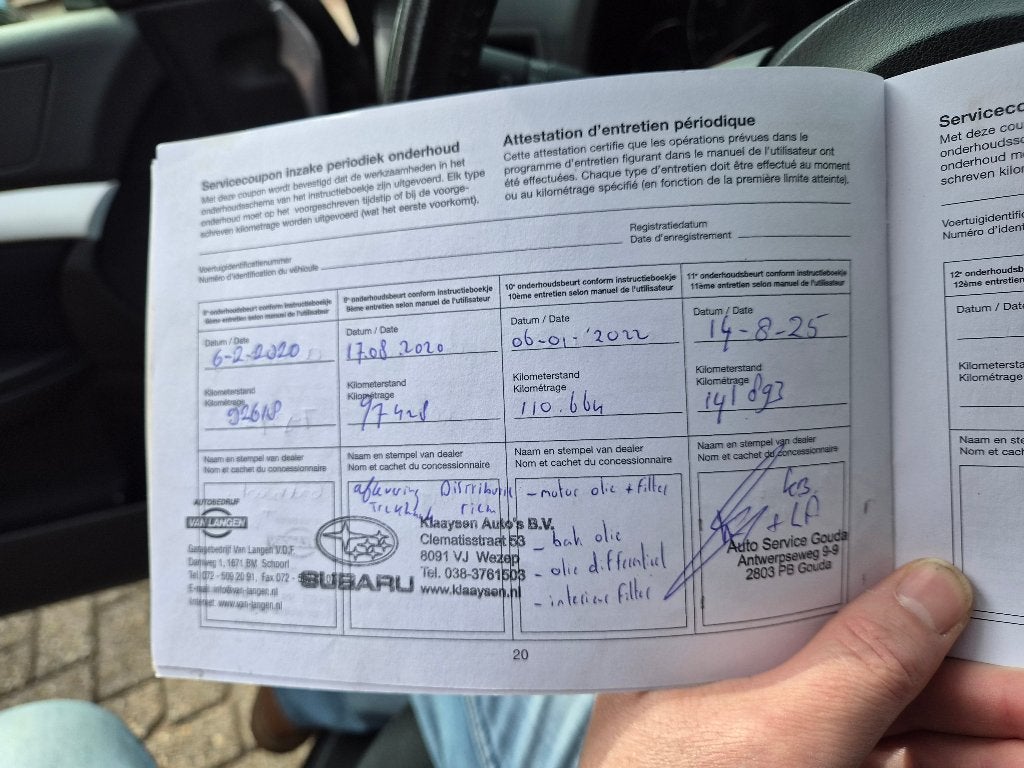 Servicecoupon inzake periodiek onderhoud
Met deze coupon wordt bevestigd dat de werkzaamheden in het
onderhoudsschema van het instructieboekje zijn uitgevoerd. Elk type
onderhoud moet op het voorgeschreven tijdstip of bij de voorge-
schreven kilometrage worden uitgevoerd (wat het eerste voorkomt).
Attestation d'entretien périodique
Cette attestation certifie que les opérations prévues dans le
programme d'entretien figurant dans le manuel de l'utilisateur ont
été effectuées. Chaque type d'entretien doit être effectué au moment
ou au kilométrage spécifié (en fonction de la première limite atteinte).
Voertuigidentificatienummer
Numéro d'identification du véhicule
Registratiedatum
Date d'enregistrement
onderhoudsbeurt conform instructieboekje
entretien selon manuel de l'utilisateur
Datum / Date
6-2-2020
Kilometerstand
Kilométrage
92618
Naam en stempel van dealer
Nom et cachet du concessionnaire
AUTOBEDRIJF
VAN LANGEN
Garagebedrijf Van Langen V.O.F.
Damweg 1, 1871 BM Schoorl
Tel. 072 - 509 20 91, Fax 072 -
E-mail: info@van-langen.nl
Internet: www.van-langen.nl
9e onderhoudsbeurt conform instructieboekje
9ème entretien selon manuel de l'utilisateur
Datum / Date
17.08.2020
Kilometerstand
Kilométrage
97428
Naam en stempel van dealer
Nom et cachet du concessionnaire
aflevering Distributie
riem
SUBARU
Klaaysen Auto's B.V.
Clematisstraat 53
8091 VJ Wezep
Tel. 038-3761503
www.klaaysen.nl
10e onderhoudsbeurt conform instructieboekje
10ème entretien selon manuel de l'utilisateur
Datum / Date
06-01-'2022
Kilometerstand
Kilométrage
110.664
Naam en stempel van dealer
Nom et cachet du concessionnaire
- motor olie + filter
- bak olie
- olie differentieel
- interieur filter
11e onderhoudsbeurt conform instructieboekje
11ème entretien selon manuel de l'utilisateur
Datum / Date
14-8-25
Kilometerstand
Kilométrage
141893
Naam en stempel van dealer
Nom et cachet du concessionnaire
Auto Service Gouda
Antwerpseweg 9-9
2803 PB Gouda
20
Serviceco
Met deze cou
onderhoudss
onderhoud m
schreven kilon
Voertuigidentific
Numéro d'ident
12e onderhoudsb
12ème entretien
Datum / Date
Kilometerstand
Kilométrage
Naam en ste
Nom et cach